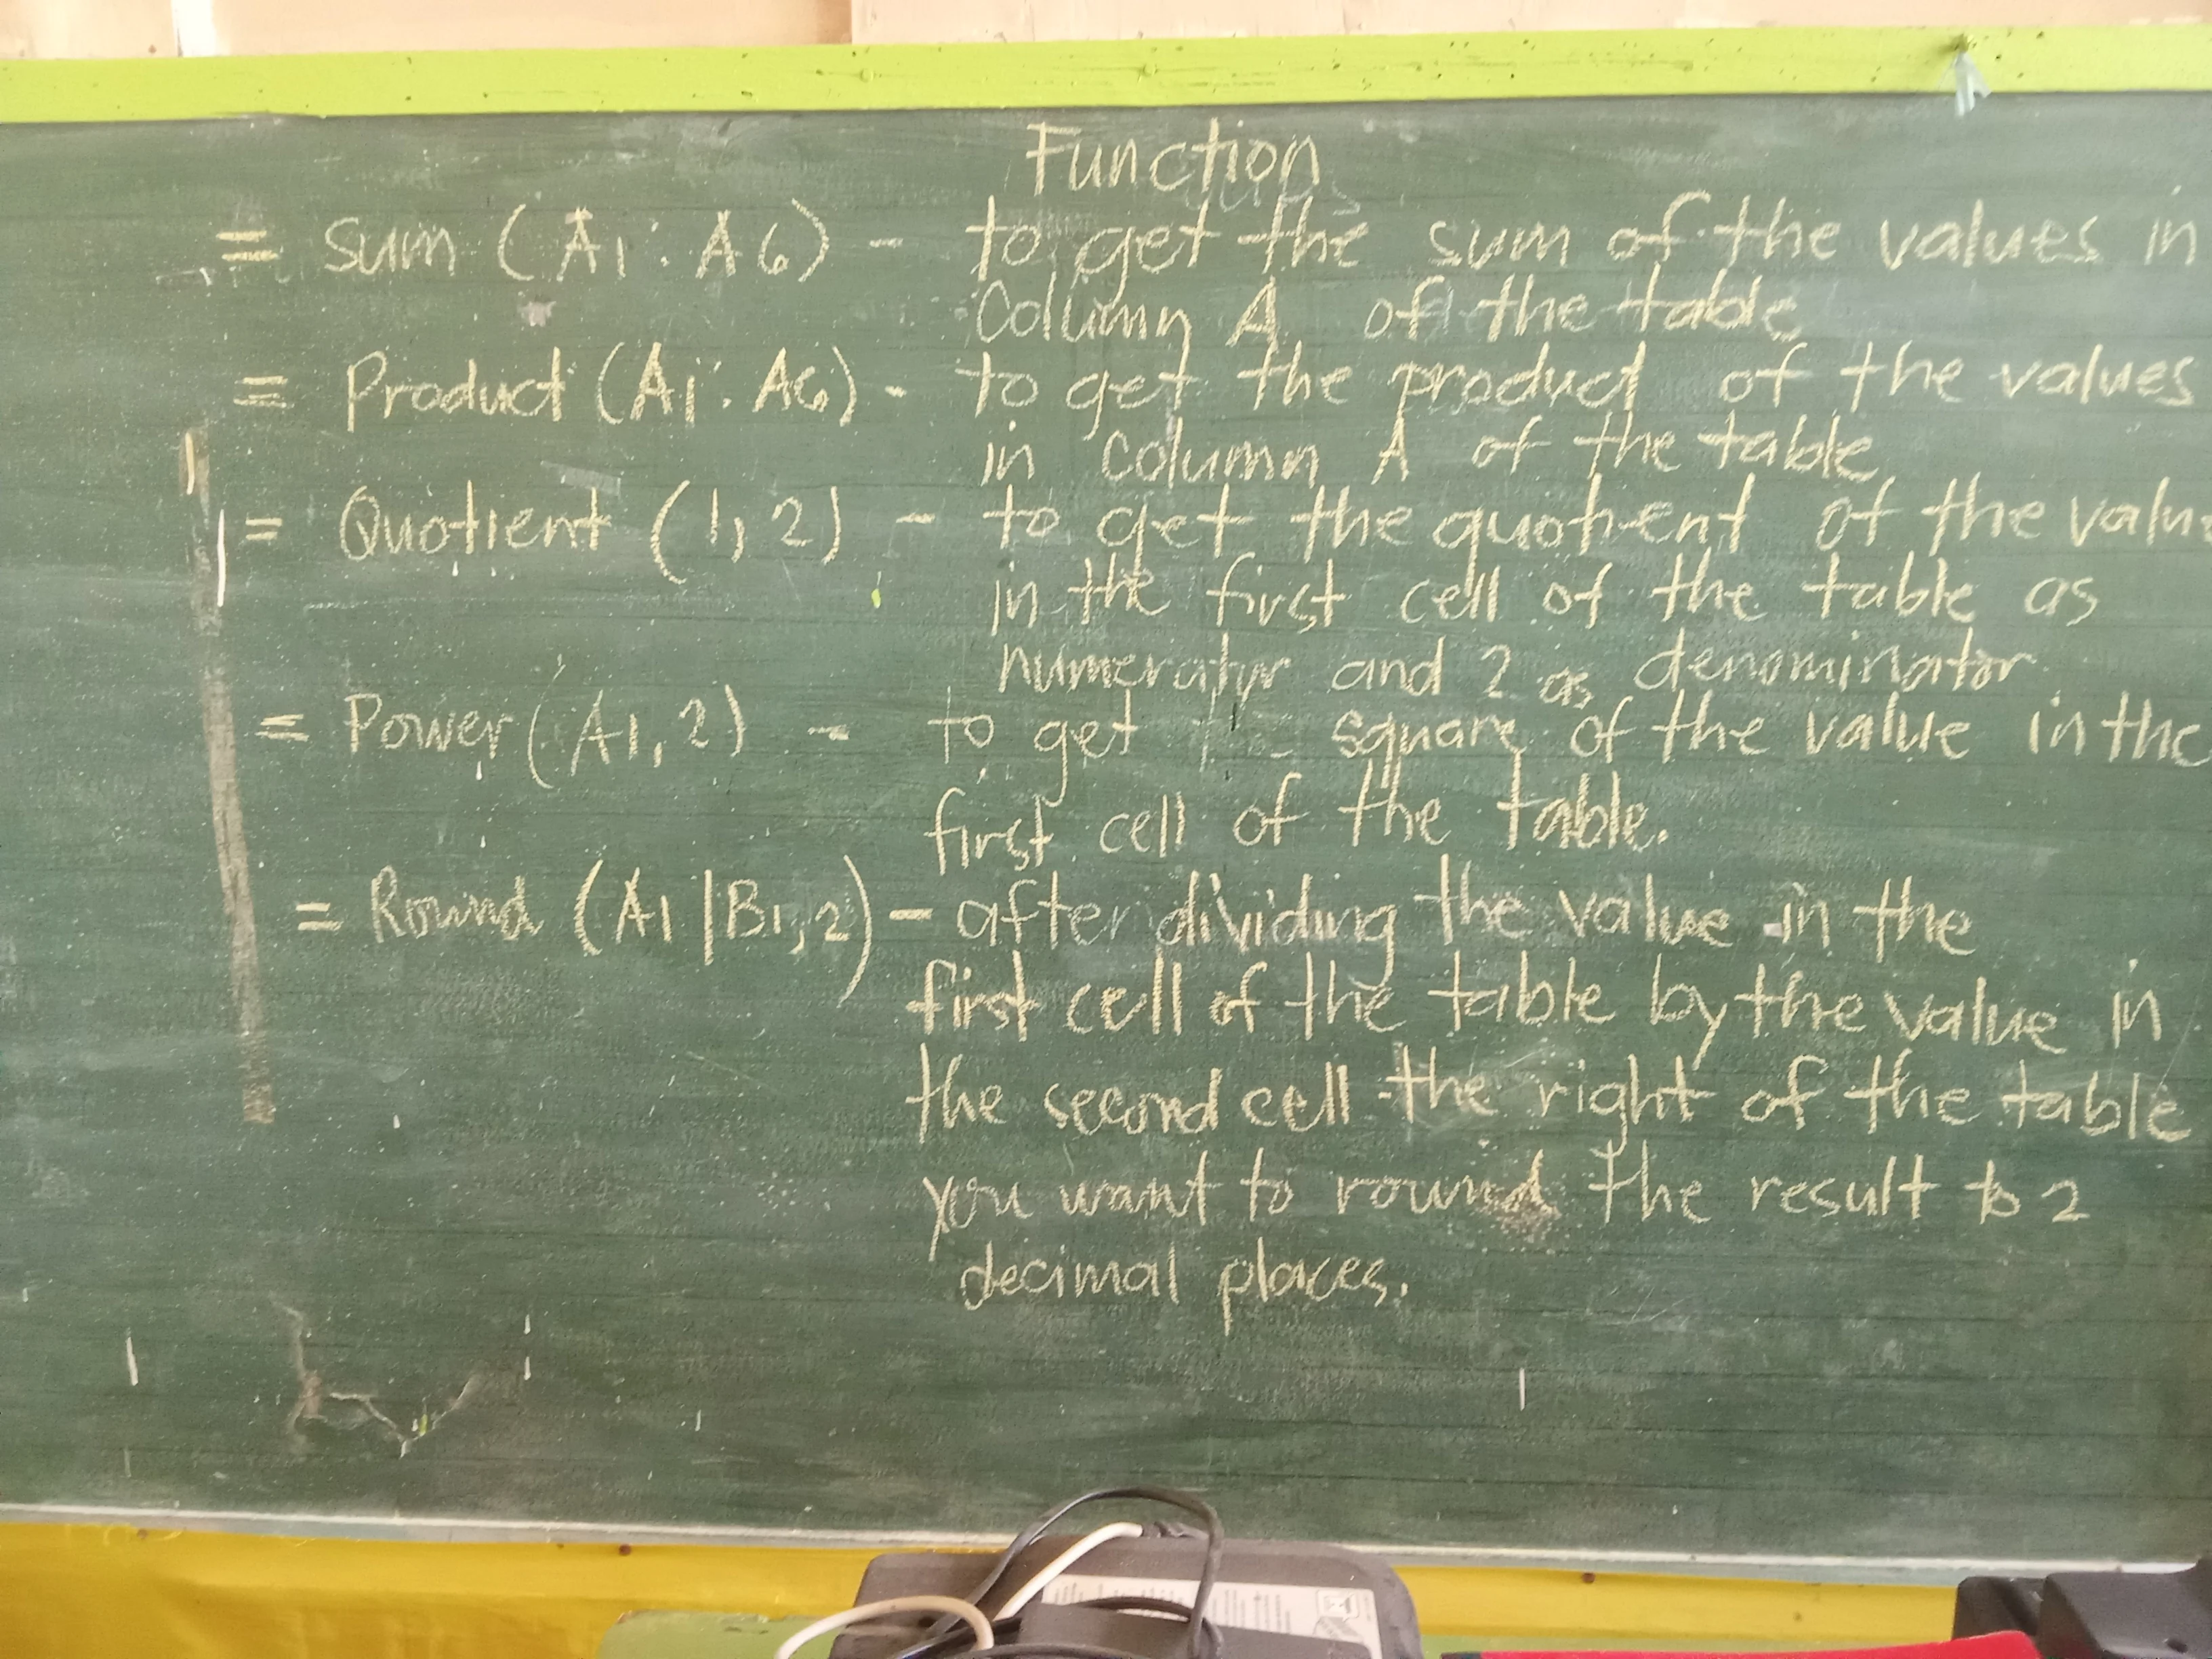 Function
= Sum (A1 : A6) - to get the sum of the values in
Column A of the table
= Product (A1 : A6) - to get the product of the values
in column A of the table
= Quotient (1, 2) - to get the quotient of the valu
in the first cell of the table as
numerator and 2 as denominator
= Power (A1, 2) - to get square of the value in the
first cell of the table.
= Round (A1 | B1, 2) - after dividing the value in the
first cell of the table by the value in
the second cell the right of the table
you want to round the result to 2
decimal places.